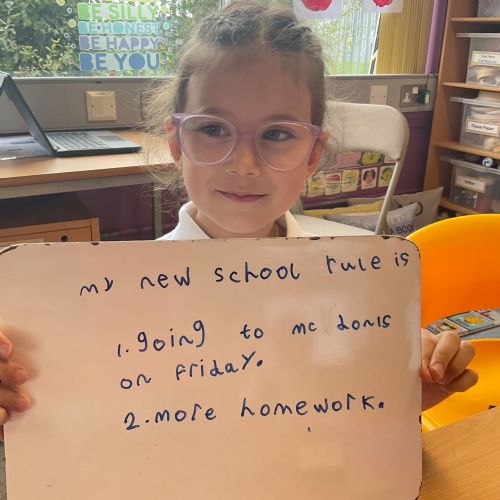 BE SILLY
BE HONEST
BE HAPPY
BE YOU
my new school rule is
1. going to mc donls
on friday.
2. more homework.